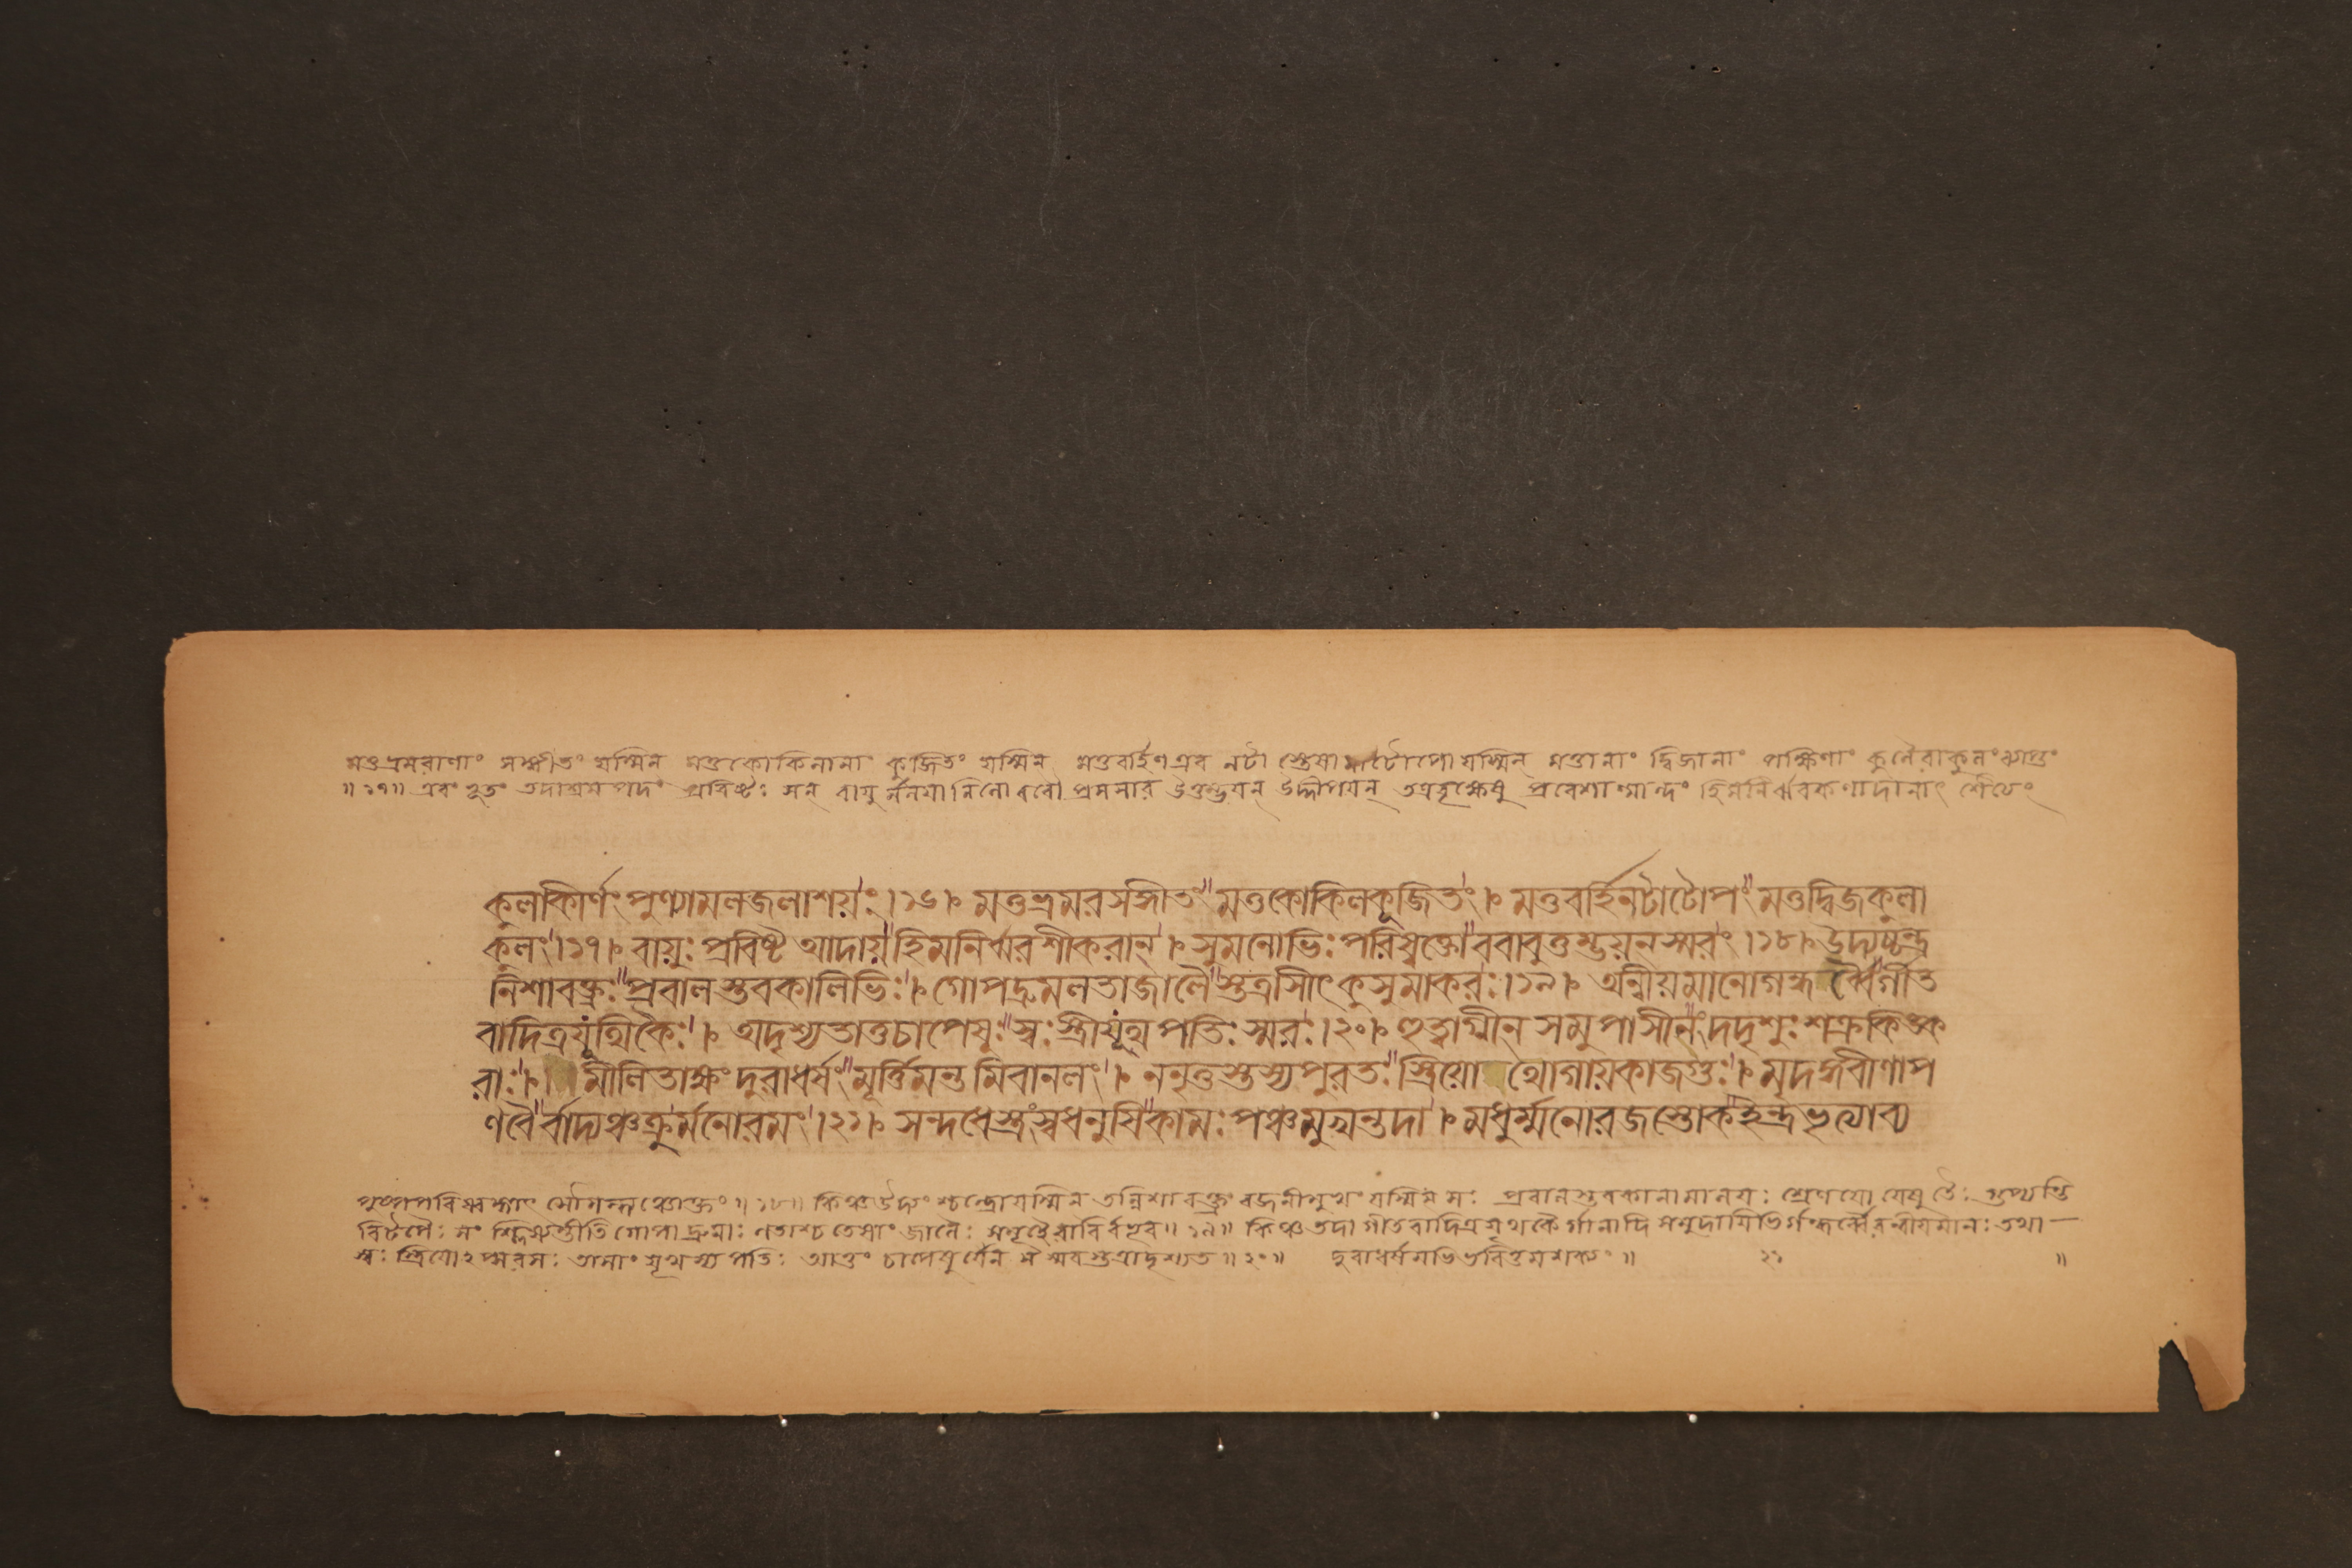 মত্তভ্রমরাণাং সঙ্গীতং যস্মিন্ মত্তকোকিলানাং কূজিতং যস্মিন্ মত্তবর্হিণ এব নটা স্তেষা মাটোপো যস্মিন্ মত্তানাং দ্বিজানাং পক্ষিণাং কুলৈরাকুলং ব্যাপ্তং
॥১৭॥ এবং ভূতং তদাশ্রমপদং প্রবিষ্টঃ সন্ বায়ু র্মলয়ানিলো ববৌ প্রসসার উত্তম্ভয়ন্ উদ্দীপয়ন্ তত্রবৃক্ষেষু প্রবেশান্মান্দ্যং হিমনির্ঝরকণাদানাৎ শৈত্যং
কুলাকীর্ণং পুণ্যামলজলাশয়ং ।১৬। মত্তভ্রমরসঙ্গীতং মত্তকোকিলকূজিতং । মত্তবর্হিনটাটোপং মত্তদ্বিজকুলা
কুলং ।১৭। বায়ুঃ প্রবিষ্ট আদায় হিমনির্ঝরশীকরান্ । সুমনোভিঃ পরিষ্বক্তো ববাবুত্তম্ভয়নস্মরং ।১৮। উদ্যচ্চন্দ্র
নিশাবক্ত্রঃ প্রবালস্তবকালিভিঃ । গোপদ্রুমলতাজালৈ স্তত্রাসীৎ কুসুমাকরঃ ।১৯। অন্বীয়মানোগন্ধর্ব্বৈর্গীত
বাদিত্রযূথিকৈঃ । অদৃশ্যতাত্তচাপেষুঃ স্বঃস্ত্রীযূথপতিঃ স্মরঃ ।২০। হুত্বাগ্নীন সমুপাসীনং দদৃশুঃ শক্রকিঙ্ক
রাঃ । মীলিতাক্ষং দুরাধর্ষং মূর্ত্তিমন্ত মিবানলং । ননৃতুস্তস্যপুরতঃ স্ত্রিয়ো থোগায়কাজগুঃ । মৃদঙ্গবীণাপ
ণবৈ র্বাদ্যঞ্চক্রুর্মনোরমং ।২১। সন্দধেস্ত্রংস্বধনুষি কামঃ পঞ্চমুখন্তদা । মধুর্ম্মনোরজস্তোক ইন্দ্রভৃত্যাব্য
পুষ্পপরিষ্বঙ্গাৎ সৌগন্ধ্যঞ্চোক্তং ॥১৮॥ কিঞ্চ উদ্যং শ্চন্দ্রোযস্মিন্ তন্নিশাবক্ত্রং রজনীমুখং যস্মিন্ সঃ প্রবালস্তবকানামালয়ঃ শ্রেণয়ো যেষু তৈঃ গুপ্যন্তি
বিটপৈঃ সং শ্লিষ্যন্তীতি গোপা দ্রুমাঃ লতাশ্চ তেষাং জালৈঃ সমূহৈরাবির্বভূব॥১৯॥ কিঞ্চ তদা গীতবাদিত্রযূথকৈ র্গানাদি সমুদায়িভির্গন্ধর্ব্বৈরন্বীয়মানঃ তথা —
স্বঃ স্ত্রিয়োঽপ্সরসঃ তাসাং যূথস্য পতিঃ আত্তং চাপেষুর্যেন স স্মরস্তত্রাদৃশ্যত ॥২০॥ দুরাধর্ষমভিভবিতুমশক্যং ॥ ২১ ॥